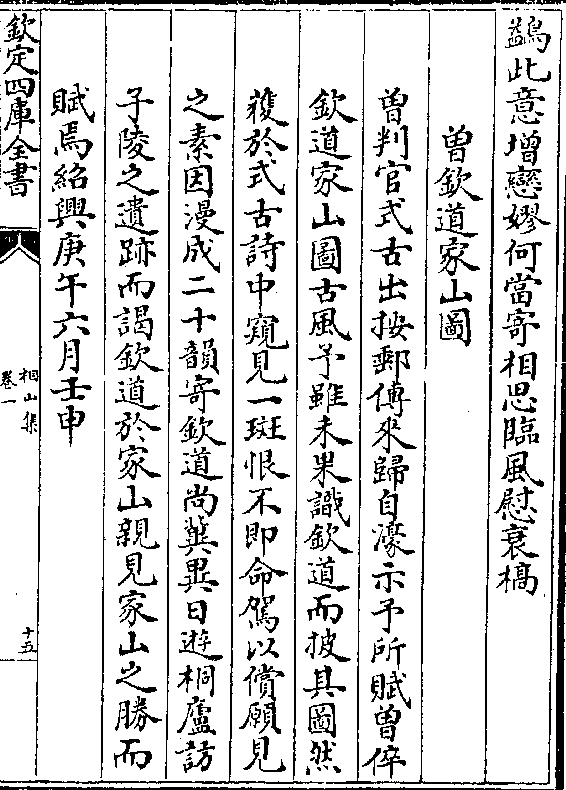 鷁此意增戀嫪何當寄相思臨風慰衰槁
曾欽道家山圖
曾判官式古出按郵傳來歸自濠示予所賦曾倅
欽道家山圖古風予雖未果識欽道而披其圖然
獲於式古詩中窺見一斑恨不即命駕以償願見
之素因漫成二十韻寄欽道尚冀異日遊桐廬訪
子陵之遺跡而謁欽道於家山親見家山之勝而
賦焉紹興庚午六月壬申
欽定四庫全書
相山集
卷一
十五